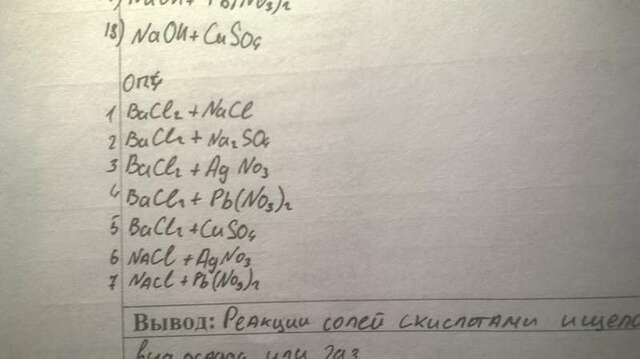 NaOH + Pb(NO₃)₂
18) NaOH + CuSO₄
ОП4
1 BaCl₂ + NaCl
2 BaCl₂ + Na₂SO₄
3 BaCl₂ + AgNO₃
4 BaCl₂ + Pb(NO₃)₂
5 BaCl₂ + CuSO₄
6 NACl + AgNO₃
7 NACl + Pb(NO₃)₂
Вывод: Реакции солей с кислотами и
или газ